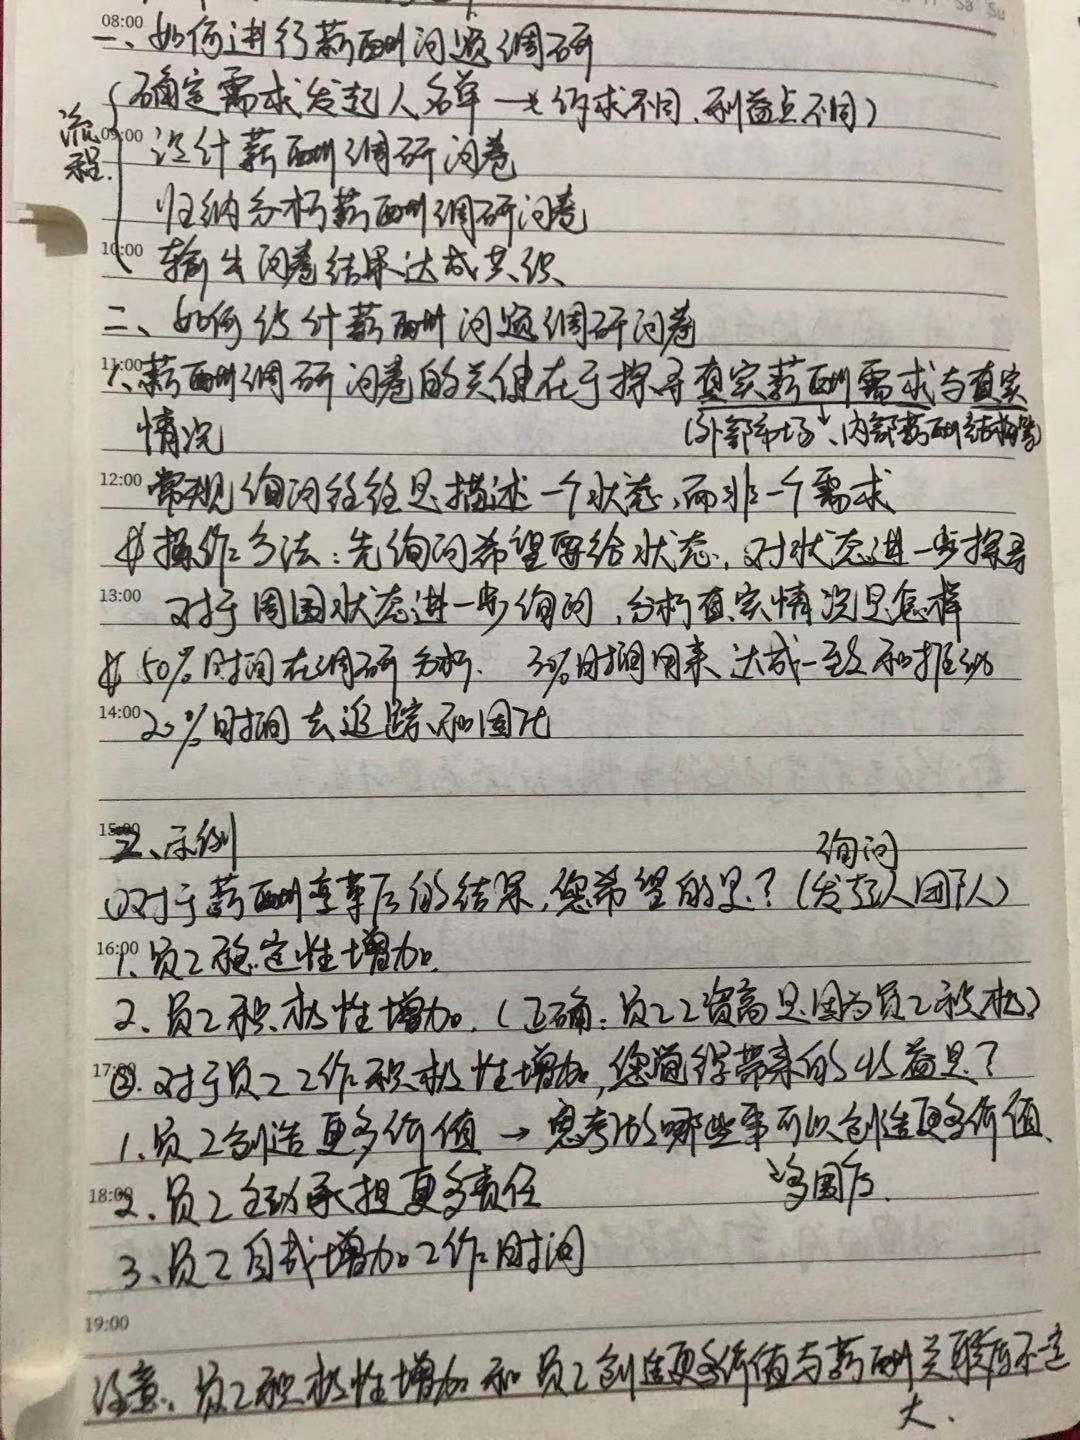 Sa Su
08:00
一、如何进行薪酬问题调研
流程
(确定需求发起人名单 → 诉求不同、利益点不同)
09:00 设计薪酬调研问卷
归纳分析薪酬调研问卷
10:00 输出问卷结果达成共识
二、如何设计薪酬问题调研问卷
11:00
1、薪酬调研问卷的关键在于探寻真实薪酬需求与真实
情况 (外部市场、内部薪酬结构等)
12:00 常规询问往往是描述一个状态,而非一个需求
操作方法:先询问希望要给状态,对状态进一步探寻
13:00 对于周围状态进一步询问,分析真实情况是怎样
50%时间在调研分析. 30%时间用来达成一致和推动
14:00 20%时间去追踪和固化
15:00
三、示例
询问
①对于薪酬变革后的结果,您希望的是?(发起人团队)
16:00
1、员工稳定性增加
2、员工积极性增加.(正确:员工工资高是因为员工积极)
17:00 ②.对于员工工作积极性增加,您觉得带来的收益是?
1、员工创造更多价值 → 思考做哪些事可以创造更多价值、
18:00
2、员工主动承担更多责任
3、员工自我增加工作时间
19:00
注意、员工积极性增加和员工创造更多价值与薪酬关联度不一定
大.